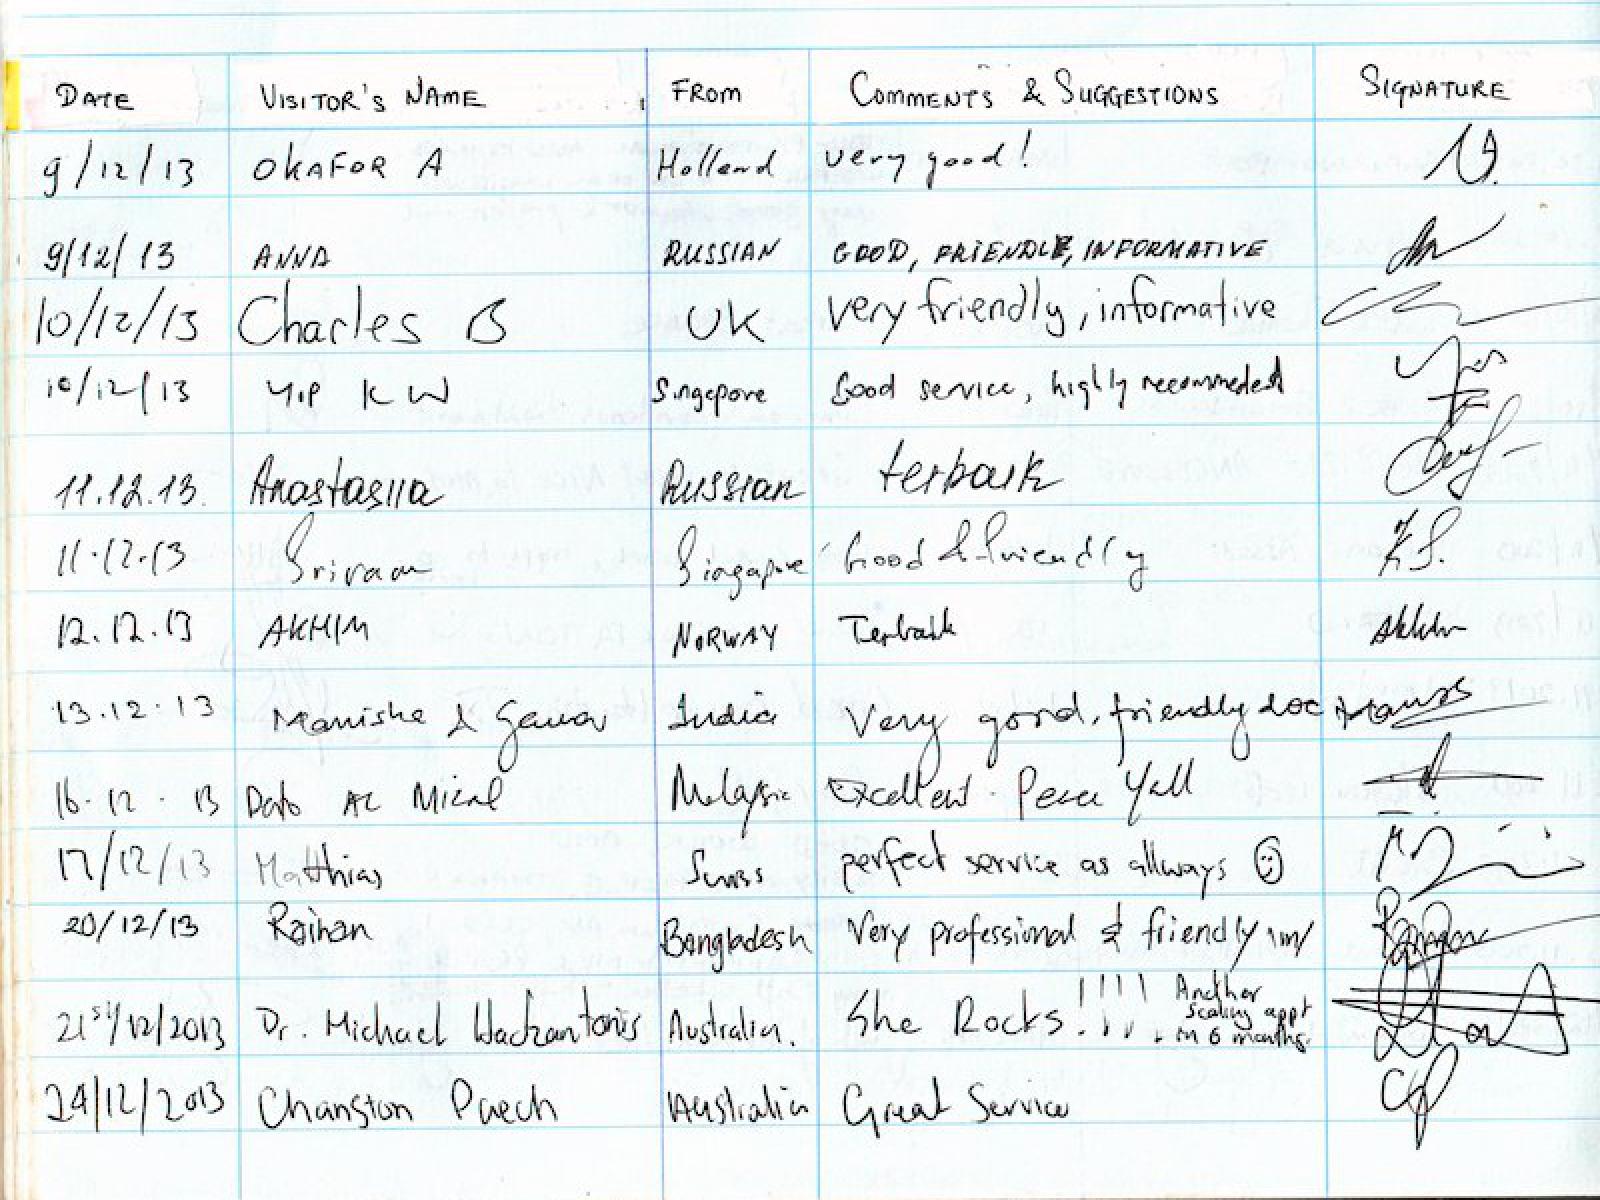 DATE VISITOR'S NAME FROM COMMENTS & SUGGESTIONS SIGNATURE
9/12/13 OKAFOR A Holland very good!
9/12/13 ANNA RUSSIAN GOOD, FRIENDLE, INFORMATIVE
10/12/13 Charles B UK very friendly, informative
10/12/13 YIP K W Singapore Good service, highly recommeded
11.12.13. Anastasiia RUSSIAN terbaik
11.12.13 Sriram Singapore Good & friendly
12.12.13 AKHIM NORWAY Terbaik
13.12.13 Manisha & India Very good, friendly doc
16.12.13 Dato AC Mizal Malaysia Excellent. Peace Yall
17/12/13 Matthias Swiss perfect service as allways ☺
20/12/13 Raihan Bangladesh Very professional & friendly
21st/12/2013 Dr. Michael Australia. She Rocks!!!! Another
scaling appt
in 6 months.
24/12/2013 Chanston Paech Australia Great Service